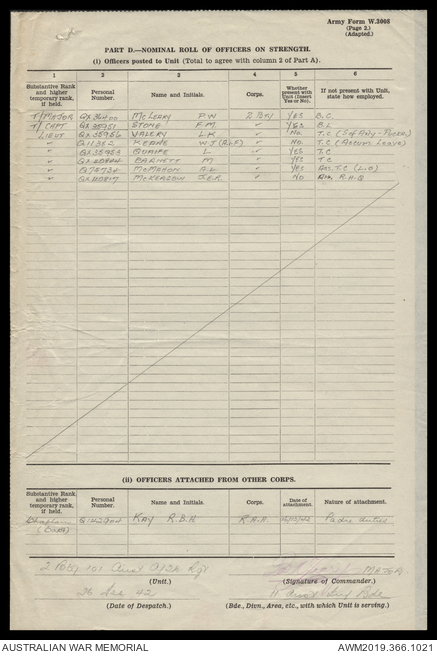 Army Form W.3008
(Page 2.)
(Adapted.)
PART D.—NOMINAL ROLL OF OFFICERS ON STRENGTH.
(i) Officers posted to Unit (Total to agree with column 2 of Part A).
1 2 3 4 5 6
Substantive Rank and higher temporary rank, if held. Personal Number. Name and Initials. Corps. Whether present with Unit (Insert Yes or No). If not present with Unit, state how employed.
T/MAJOR QX36400 McLEARY P W 2 Bty YES B.C.
T/CAPT STONE F.M. " YES
LIEUT VALERY L.K " No T.C
" KEANE W J " No T.C (Accum Leave)
" QUAIFE L " YES T.C
" BARNETT M " YES T.C
" McMAHON A.L " YES
" J.E.R. " NO R.H.Q
(ii) OFFICERS ATTACHED FROM OTHER CORPS.
Substantive Rank and higher temporary rank, if held. Personal Number. Name and Initials. Corps. Date of attachment. Nature of attachment.
Chaplain KAY R.B.H Padre duties
2 Bty 101 Aust A/Tk Rgt MAJOR
(Unit.) (Signature of Commander.)
26 Dec 42 11 Aust Bde
(Date of Despatch.) (Bde., Divn., Area, etc., with which Unit is serving.)
AUSTRALIAN WAR MEMORIAL AWM2019.366.1021